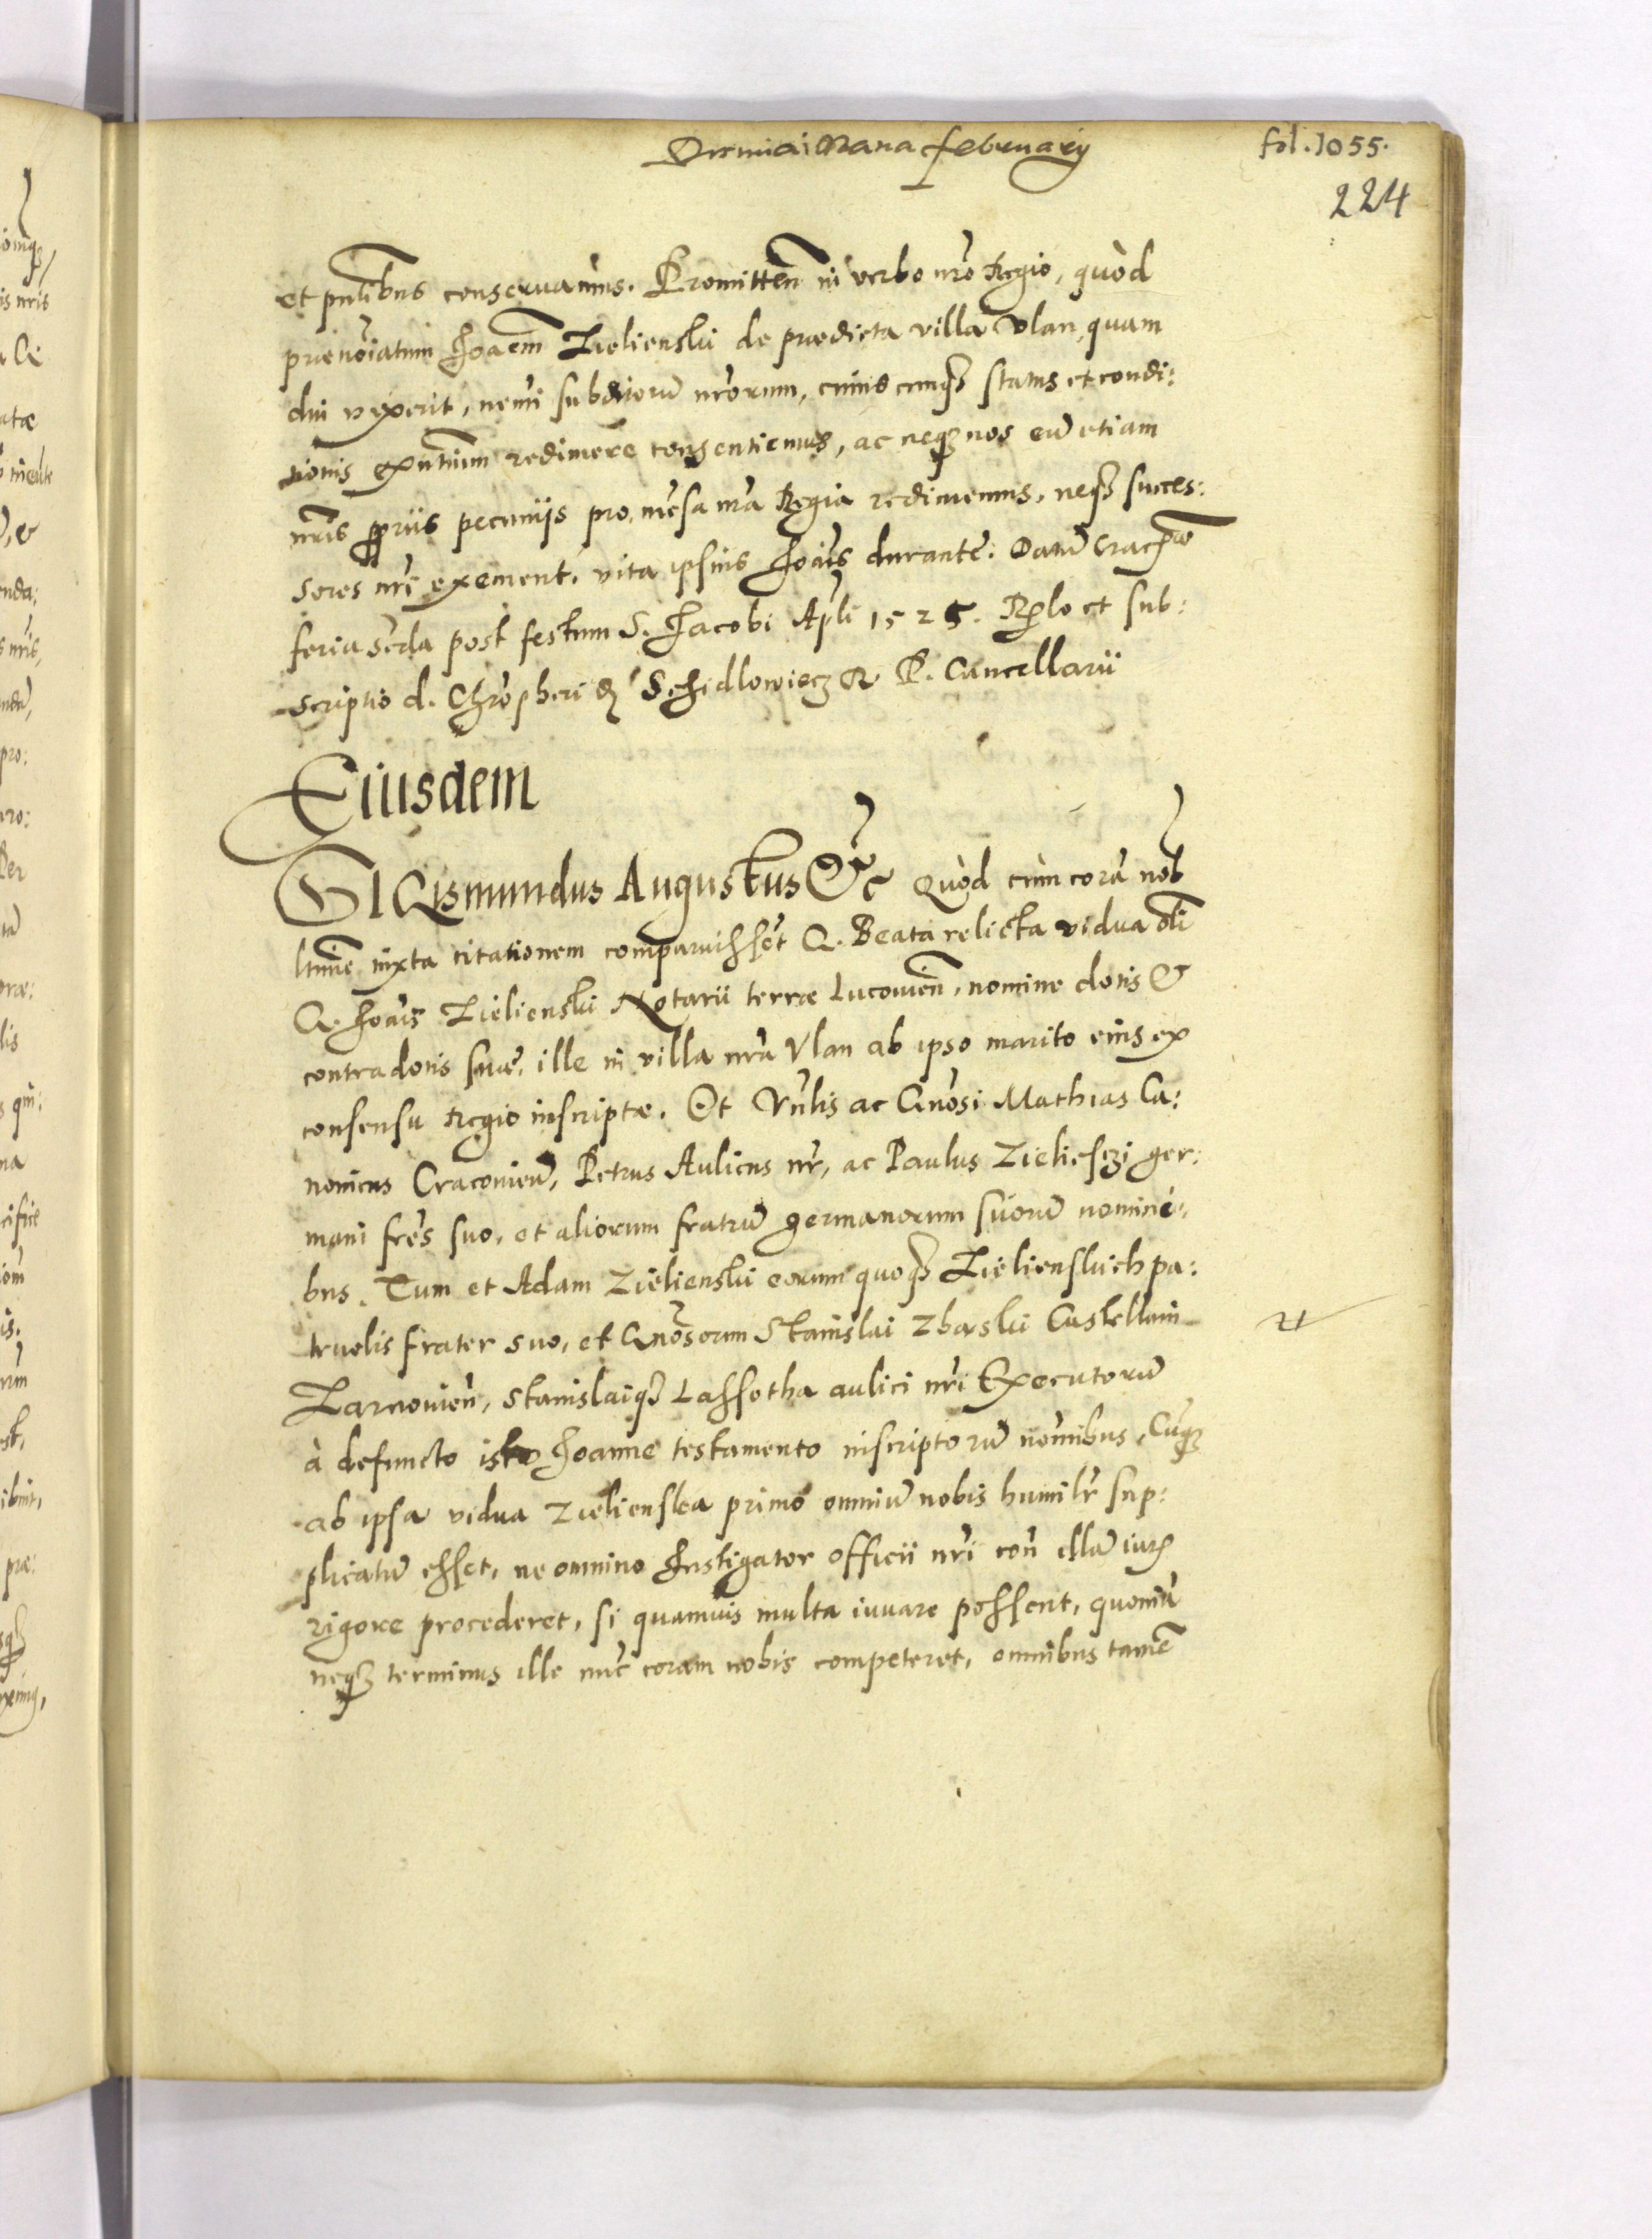 februarij
fol. 1055.
224
et pntibus conseruamus. Promitten in verbo nro Regio, quòd
prænoiatum Joaem Zielienski de prædicta villa Vlan, quam
diu vixerit, nemi subditoru nrorum, cuiuscunqz status et condi:
tionis exntium redimere consentiemus, ac neqz nos eu etiam
nris propriis pecuniis pro mesa nra Regia redimemus, neqz succes:
sores nri exement, vita ipsius Joais durante. Datu Crac
feria scda post festum S. Jacobi Apli 1525. Rlo et sub:
scriptio d. Chrophori de Schidlowiecz R. P. Cancellarii
Eiusdem
SIGismundus Augustus &c quòd cùm corà nob
ltime iuxta citationem comparuisset G. Beata relicta vidua oli
G. Joais Zielienski Notarii terræ Lucouien, nomine dotis &
contradotis suæ, ille in villa nra Vlan ab ipso marito eius ex
consensu Regio inscriptæ. Et Vnlis ac Gnosi Mathias Ca:
nonicus Cracouien, Petrus Aulicus nr, ac Paulus Zieliesczi ger:
mani fres suo, et aliorum fratru germanorum suoru nomine:
bus. Tum et Adam Zielienski eorum quoqz Zielienskich pa:
truelis frater suo, et Gnosorum Stanislai Zbaski Castellani
Zarnouien, Stanislaiqz Lassotha aulici nri Executoru
à defuncto isto Joanne testamento inscriptoru nominibus, Cuqz
ab ipsa vidua Zielienska primo omniu nobis humilr sup:
plicatu esset, ne omnino Instigator officii nri con illa iuris
rigore procederet, si quamuis multa iuuare possent, quominu
neqz terminus ille nuc coram nobis competeret, omnibus tame